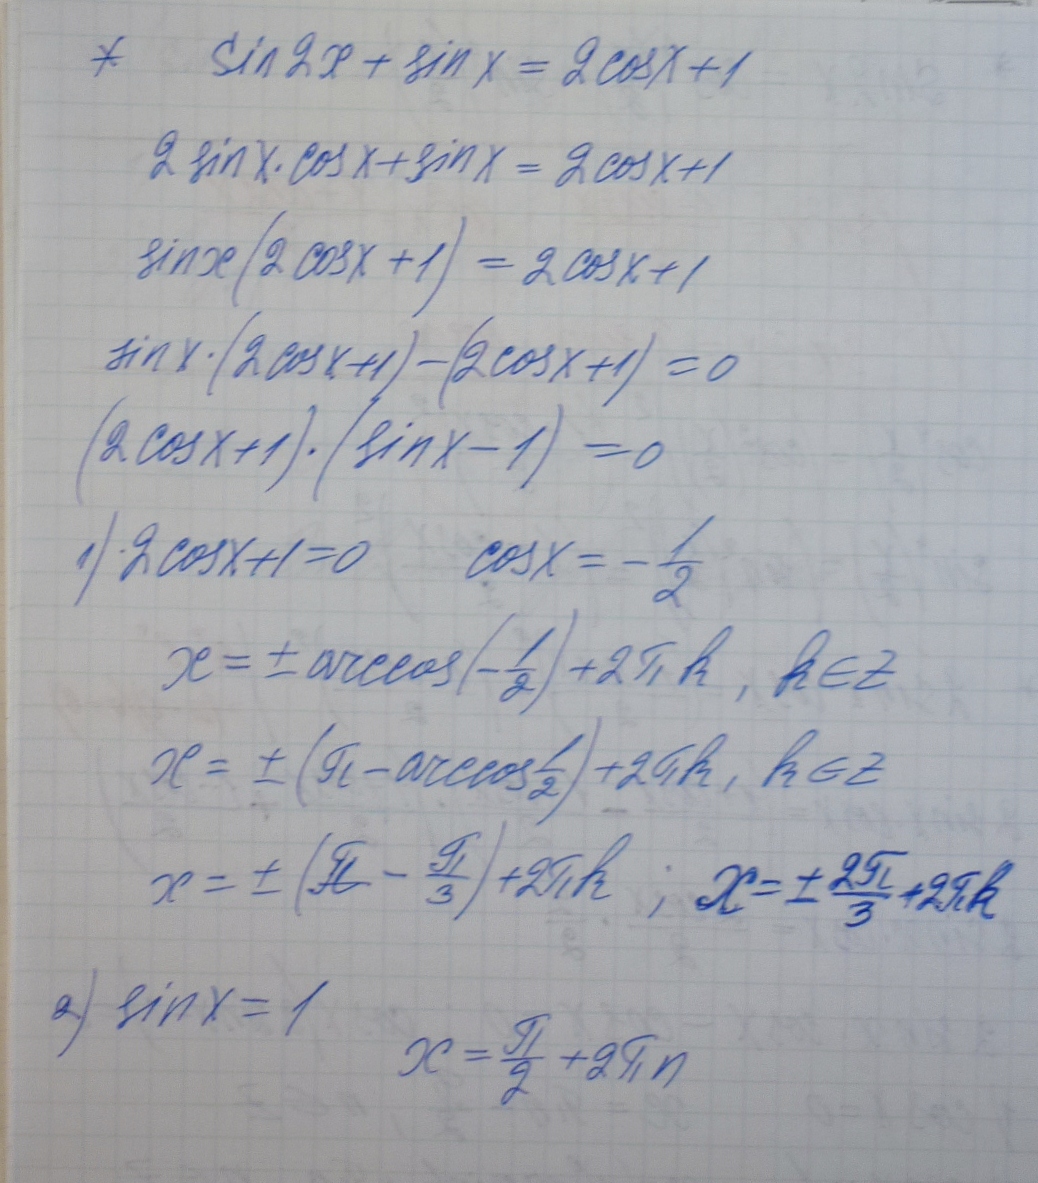 * sin2x + sin x = 2cosx+1
2 sinx·cosx+sinx = 2cosx+1
sinx(2cosx+1) = 2cosx+1
sinx·(2cosx+1)-(2cosx+1) = 0
(2cosx+1)·(sinx-1) = 0
1) 2cosx+1=0 cosx = -1/2
x = ± arccos(-1/2)+2πk, k∈Z
x = ± (π-arccos1/2)+2πk, k∈Z
x = ± (π - π/3)+2πk ; x = ± 2π/3 +2πk
2) sinx = 1
x = π/2 +2πn